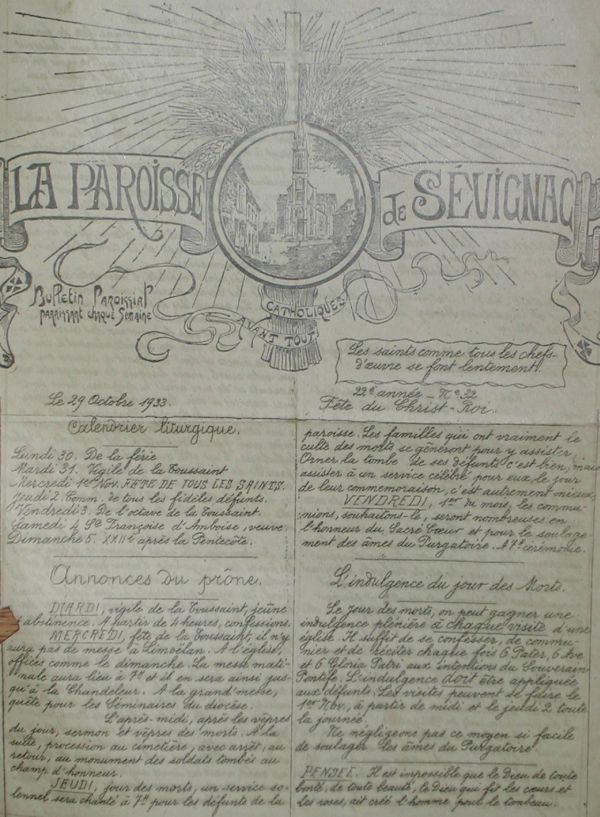 LA PAROISSE de SÉVIGNAC
Bulletin Paroissial
paraissant chaque Semaine
CATHOLIQUES
AVANT TOUT!
Les saints comme tous les chefs-
d'œuvre se font lentement.
Le 29 Octobre 1933.
22e année - No 32
Fête du Christ-Roi.
Calendrier liturgique.
Lundi 30. De la férie
Mardi 31. Vigile de la Toussaint
Mercredi 1er Nov. FÊTE DE TOUS LES SAINTS.
Jeudi 2. Comm. de tous les fidèles défunts.
Vendredi 3. De l'octave de la Toussaint.
Samedi 4 Ste Françoise d'Amboise, veuve.
Dimanche 5. XXIIe après la Pentecôte.
Annonces du prône.
MARDI, vigile de la Toussaint, jeûne
d'abstinence. A partir de 4 heures, confessions.
MERCREDI, fête de la Toussaint, il n'y
aura pas de messe à Limoëlan. A l'église,
offices comme le dimanche. La messe mati-
nale aura lieu à 7h et il en sera ainsi jus-
qu'à la Chandeleur. A la grand'messe,
quête pour les Séminaires du diocèse.
L'après-midi, après les vêpres
du jour, sermon et vêpres des morts. A la
suite, procession au cimetière, avec arrêt, au
retour, au monument des soldats tombés au
champ d'honneur.
JEUDI, jour des morts, un service so-
lennel sera chanté à 7h pour les défunts de la
paroisse. Les familles qui ont vraiment le
culte des morts se gêneront pour y assister.
Orner la tombe de ses défunts c'est bien, mais
assister à un service célébré pour eux le jour
de leur commémoraison, c'est autrement mieux.
VENDREDI, 1er du mois, les commu-
nions, souhaitons-le, seront nombreuses en
l'honneur du Sacré Cœur et pour le soulage-
ment des âmes du Purgatoire. A 7h cérémonie.
L'indulgence du jour des Morts.
Le jour des morts, on peut gagner une
indulgence plénière à chaque visite d'une
église. Il suffit de se confesser, de commu-
nier et de réciter chaque fois 6 Pater, 6 Ave
et 6 Gloria Patri aux intentions du Souverain
Pontife. L'indulgence doit être appliquée
aux défunts. Les visites peuvent se faire le
1er Nov. à partir de midi et le jeudi 2 toute
la journée.
Ne négligeons pas ce moyen si facile
de soulager les âmes du Purgatoire.
PENSÉE. Il est impossible que le Dieu de toute
bonté, de toute beauté, le Dieu qui fit les cœurs et
les roses, ait créé l'homme pour le tombeau.